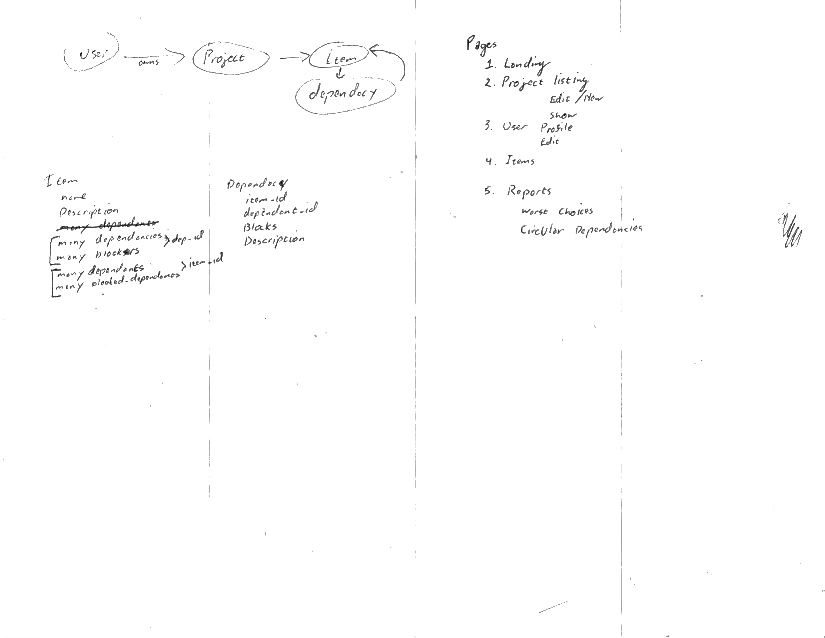 User
owns
Project
Item
dependecy
Item
name
Description
many dependants
many dependancies > dep-id
many blockers
many dependants > item-id
many blocked-dependanes
Dependecy
item-id
dependant-id
Blocks
Description
Pages
1. Landing
2. Project listing
Edit / New
Show
3. User Profile
Edit
4. Items
5. Reports
Worst Choices
Circular Dependencies